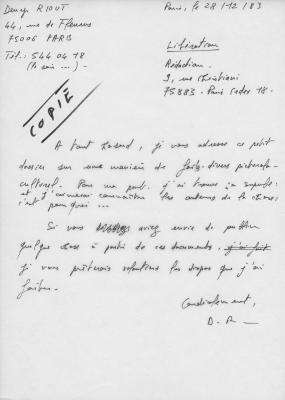 Denys RIOUT
Paris, le 28/12/83
44, rue de Fleurus
75006 PARIS
Tél: 544 04 18
(le soir ...)
Libération
Rédaction.
9, rue Christiani
75883 - Paris Cedex 18.
COPIE
A tout hasard, je vous adresse ce petit
dossier sur une manière de faits-divers picturalo-
culturel. Pour ma part, j'ai trouvé ça superbe
et j'aimerais connaître les auteurs de la chose:
c'est pourquoi ...
Si vous aviez envie de publier
quelque chose à partir de ces documents,
je vous prêterais volontiers les diapos que j'ai
faites.
Cordialement,
D. R